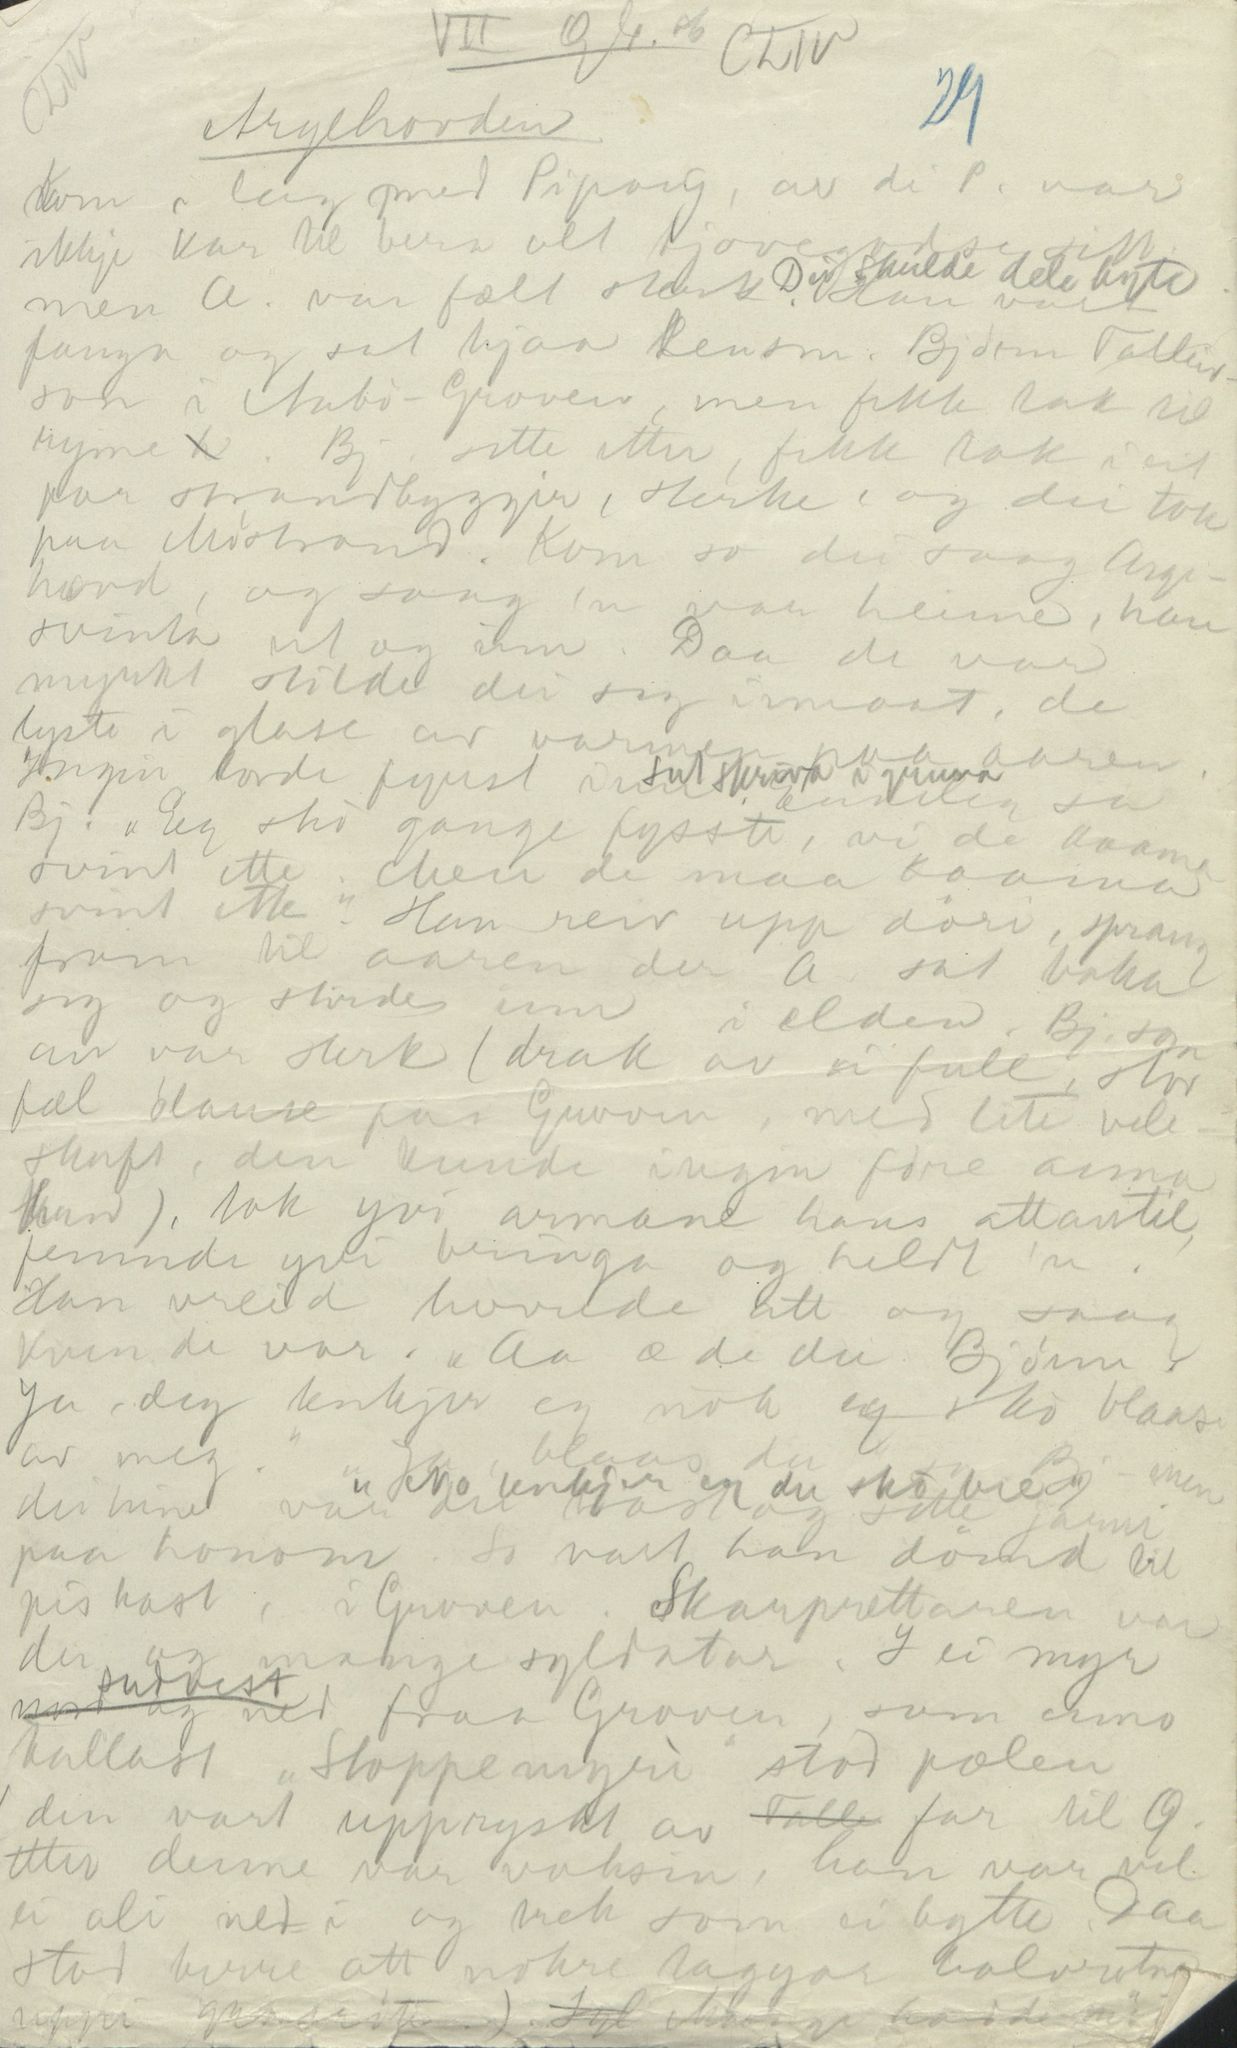 VII
CLIV
CLIV
29
Argehovden
Kom i lag med Pipaug, av di P. var
ikkje kar til bera alt tjovegodse sitt
Dei skulde dela byte.
men A. var fælt sterk. Han vart
fanga og sat hjaa Lensm. Bjørn Talleiv-
son i Aabø-Groven, men fekk tak til
ryme. Bj. sette etter, fekk tak i eit
par strandbyggjer, sterke, og dei tok
paa Møstrand. Kom so dei saag Arge-
hovd, og saag 'n var heime, han
svinta ut og inn. Daa de var
myrkt stilde dei seg innaat, de
lyste i glase av varmen paa aaren.
Ingin torde fyrst inn.
Bj. "Eg skò gange fysste, vi de kaama
svint ette. Men de maa kaama
svint ette". Han reiv upp döri, sprang
fram til aaren der A. sat baka
seg og stirde inn i elden. Bj. som
au var sterk (drak av ei full, stor
fæl blause paa Groven, med lite vele-
skaft, den kunde ingin føre anna
hand), tok yvi armane hans attantil,
femnde yvi bringa og heldt 'n.
Han vreid hovude att og saag
kven de var. "Aa æ de du Bjørn.
Ja, deg tenkjer eg nok eg skò blaase
av meg." "Ja, blaas du" sa Bj. men
"No tenkjer eg du skò bie"
dei hine var der rast og sette jarni
paa honom. So vart han dömd til
piskast, i Groven. Skarprettaren var
der og mange syldatar. I ei myr
sudvest
nord og ned fraa Groven, som enno
kallast "Stoppemyri" stod pælen
den vart upprykt av Talle far til O.
etter denne var voksin, han var vel
ei ali ned i og trek som ei bytte. Daa
stod berre att nokre taggar halvrotna
uppi grasròte.). Syl Mange hadde